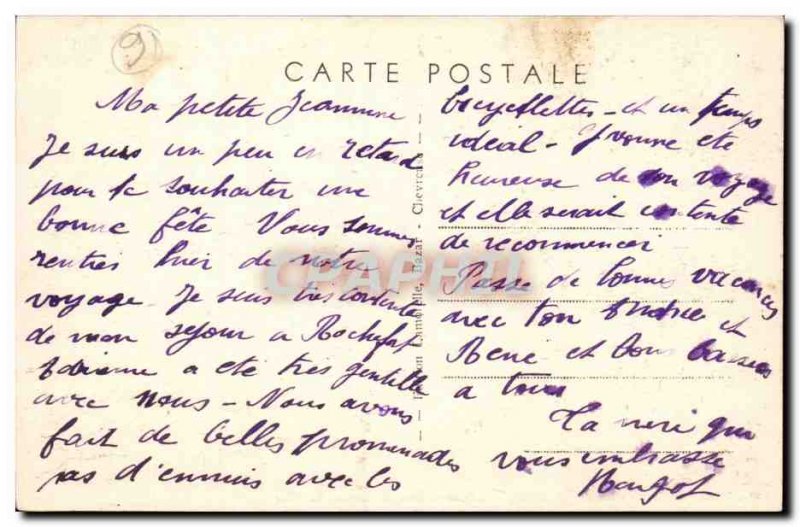 9
CARTE POSTALE
Ma petite Jeannine
Je suis un peu en retard
pour te souhaiter une
bonne fête Vous sommes
rentrés hier de notre
voyage. Je suis très contente
de mon séjour a Rochefort
a été très gentille
avec nous - Nous avons
fait de belles promenades
pas d'ennuis avec les
bicyclettes - et un temps
idéal - Yvonne été
heureuse de son voyage
et elle serait contente
de recommencer
Passe de bonnes vacances
avec ton et
René et bons baisers
a tous
Ta qui
vous embrasse
Margot
Bazar - Chevreuse
CPAPHIL